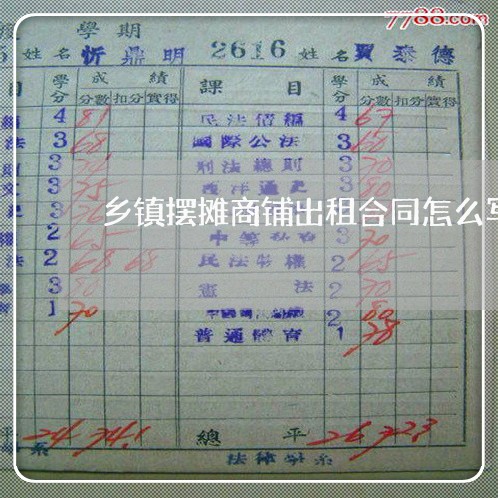 7788.com
學期
姓名 忻鼎明 2616 姓名 賈泰德
目 學分 成績 課目 學分 成績
分數 扣分 實得 分數 扣分 實得
4 81 民法債編 4 67
法 3 68 國際公法 3 60
3 刑法總則 3 70
3 75 西洋通史 3 80
乡镇摆摊商铺出租合同怎么写
2 65 3 70
法 2 68 68 民法物權 2 65
3 80 憲法 2 70
1 70 2 80
普通體育 1 78
24 74.1 總平 26 72.3
系 法律學系